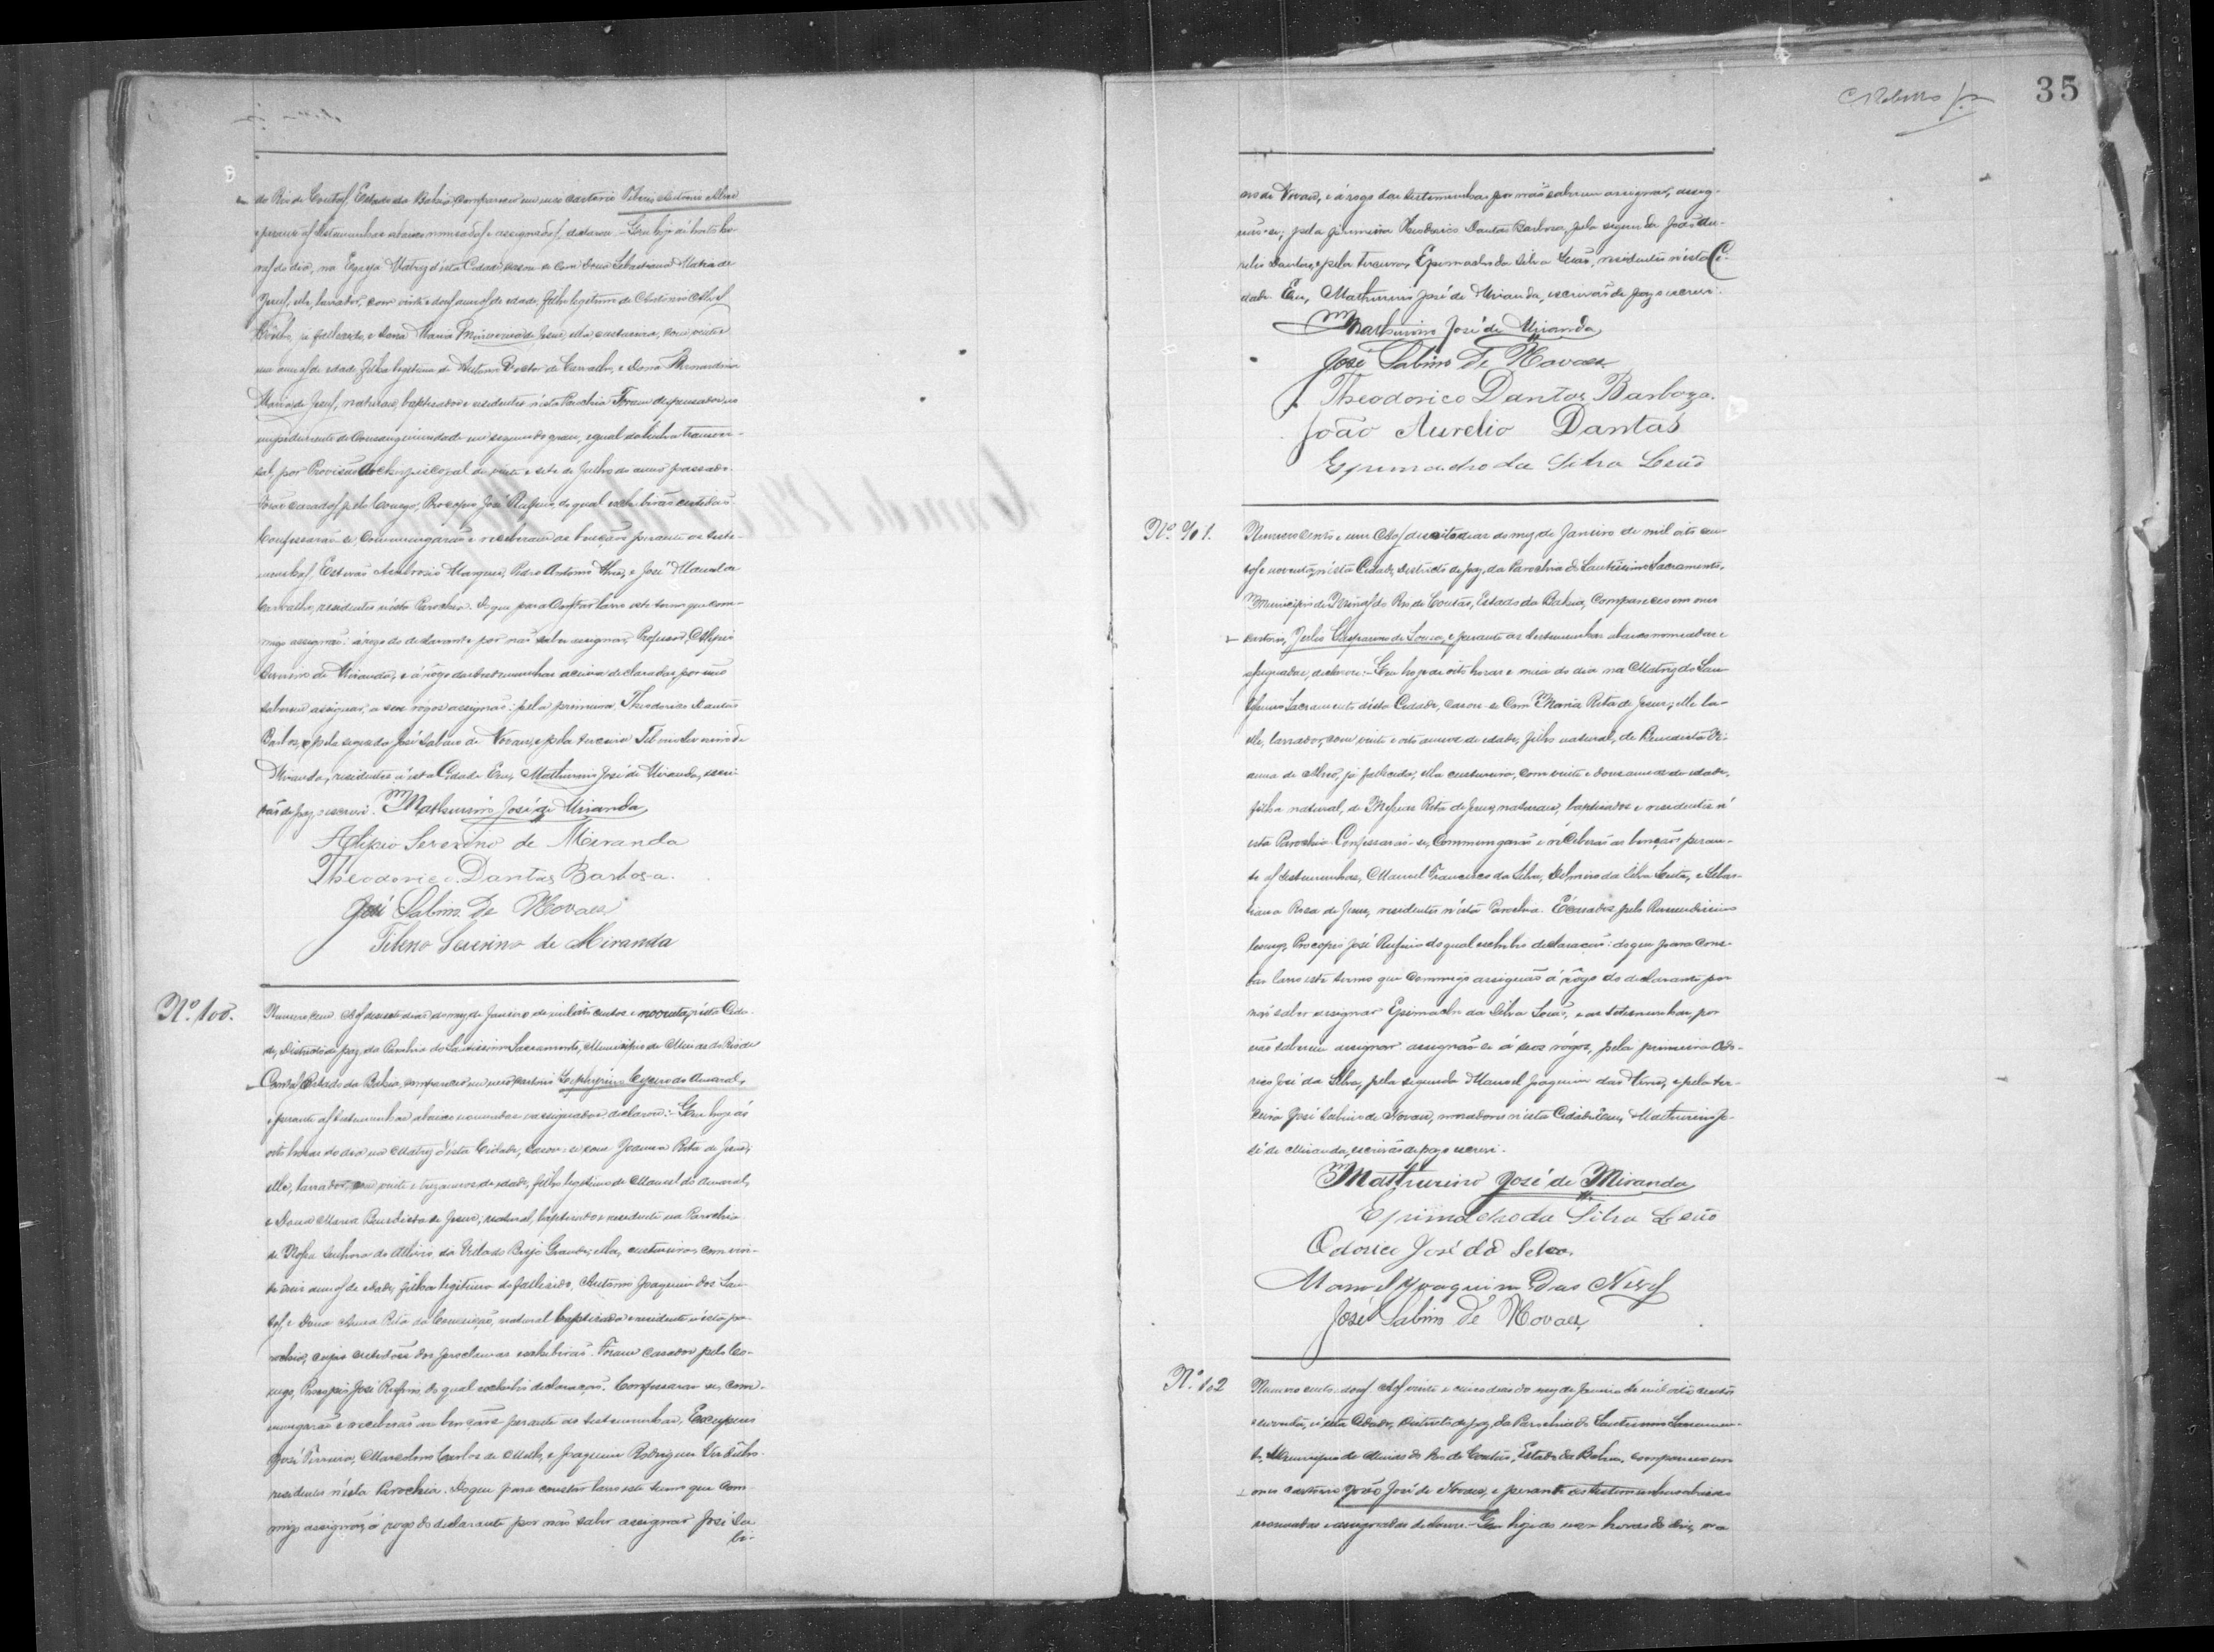 35
do Rio de Contas, Estado da Bahia, compareceo em meo cartorio Antonio Alves
e perante as testemunhas abaixo nomeadas e assignadas, declarou: Que hoje ás horas
do dia, na Egreja Matriz d'esta Cidade, casou-se com Dona Sebastiana Maria de
Jesus, elle, lavrador, com vinte e dous annos de edade, filho legitimo de Antonio Alves
já fallecido, e Dona Maria de Jesus, ella costureira, com vinte e
um annos de edade, filha legitima de de Carvalho, e Dona Bernardina
Maria de Jesus, naturaes, baptisados e residentes n'esta Parochia. Foram dispensados no
impedimento de consanguinidade em segundo grau, egual da linha transver-
sal, por Provisão Archiepiscopal de vinte e sete de Julho do anno passado.
Forão casados pelo Conego, Procopio José Rufino, do qual exhibirão certidão.
Confessarão-se, Commungarão e receberão as benções perante as teste-
munhas, Estevão Ambrosio Marques, Pedro Antonio Alves, e José Manoel de
Carvalho, residentes n'esta Parochia. Do que para constar lavro este termo que com-
migo assignão: á rogo do declarante por não saber assignar, Professor, Olipio
Severino de Miranda, e á rogo das testemunhas acima declaradas por não
saberem assignar, a seos rogos assignão: pela primeira, Theodorico Dantas
Barbosa, pela segunda José Sabino de Novaes, e pela terceira Severino de
Miranda, residentes n'esta Cidade. Eu, Mathurino José de Miranda, escri-
vão de paz, o escrevi. Mathurino José de Miranda
Severino de Miranda
Theodorico Dantas Barbosa.
José Sabino de Novaes
Severino de Miranda
Nº 100.
Numero cem. Aos desesete dias do mez de Janeiro de mil oito centos e noventa, n'esta Cida-
de, Districto de paz, da Parochia do Santissimo Sacramento, Municipio de Minas do Rio de
Contas, Estado da Bahia, compareceo em meo cartorio do Amaral,
e perante as testemunhas abaixo nomeadas e assignadas, declarou: - Que hoje ás
oito horas do dia na Matriz d'esta Cidade, casou-se com Joanna Rita de Jesus,
elle, lavrador, com vinte e trez annos de edade, filho legitimo de Manoel do Amaral,
e Dona Maria Benedicta de Jesus; natural, baptisado e residente na Parochia
de Nossa Senhora do Allivio, da Villa do Brejo Grande; ella, costureira, com vin-
te e seis annos de edade, filha legitima do fallecido, Antonio Joaquim dos San-
tos, e Dona Anna Rita da Conceição, natural baptisada e residente n'esta pa-
rochia, cujas certidões dos proclamas exhibirão. Foram casados pelo Co-
nego, Procopio José Rufino, do qual exhibio declaração. Confessarão-se, com-
mungarão e receberão as benções perante as testemunhas,
José Ferreira, Marcolino Carlos de Mello, e Joaquim Rodrigues
residentes n'esta Parochia. Do que para constar lavro este termo que com-
migo assignão, á rogo do declarante por não saber assignar José Sa-
bi-
no de Novaes, e á rogo das testemunhas por não saberem assignar, assig-
não-se, pela primeira Theodorico Dantas Barbosa, pela segunda João Au-
relio Dantas, e pela terceira, Epimacho da Silva Leão, residentes n'esta Ci-
dade. Eu, Mathurino José de Miranda, escrivão de paz o escrevi.
Mathurino José de Miranda
José Sabino de Novaes
Theodorico Dantas Barboza.
João Aurelio Dantas
Epimacho da Silva Leão
Nº 101.
Numero cento e um. Aos desoito dias do mez de Janeiro de mil oito cen-
tos e noventa, n'esta Cidade, Districto de paz, da Parochia do Santissimo Sacramento,
Municipio de Minas do Rio de Contas, Estado da Bahia, compareceo em meo
cartorio, de Souza, e perante as testemunhas abaixo nomeadas e
assignadas, declarou: - Que hoje ás oito horas e meia do dia na Matriz do San-
tissimo Sacramento d'esta Cidade, casou-se com Maria Rita de Jesus; elle la-
elle, lavrador, com vinte e oito annos de edade, filho natural, de Benedicta
de já fallecida; ella costureira, com vinte e dous annos de edade,
filha natural, de Rita de Jesus, naturaes, baptisados e residentes n'
esta Parochia. Confessarão-se, Commungarão e receberão as benções peran-
te as testemunhas, Manoel Francisco da Silva, da Silva e Sebas-
tiana Rosa de Jesus, residentes n'esta Parochia. E casados pelo Reverendissimo
Conego, Procopio José Rufino do qual exhibio declaração: do que para cons-
tar lavro este termo que commigo assignão á rogo do declarante por
não saber assignar Epimacho da Silva Leão, e as testemunhas, por
não saberem assignar assignão-se á seos rogos, pela primeira Odo-
rico José da Silva, pela segunda Manoel Joaquim das Neves, e pela ter-
ceira José Sabino de Novaes, moradores n'esta Cidade. Eu, Mathurino Jo-
sé de Miranda, escrivão de paz o escrevi.
Mathurino José de Miranda
Epimacho da Silva Leão
Odorico José da Silva
Manoel Joaquim Das Neves
José Sabino de Novaes
Nº 102
Numero cento e dous. Aos vinte e cinco dias do mez de Janeiro de mil oito centos
e noventa, n'esta Cidade, Districto de paz, da Parochia do Santissimo Sacramen-
to, Municipio de Minas do Rio de Contas, Estado da Bahia, compareceo em
meo cartorio João José de Novaes, e perante as testemunhas abaixo
nomeadas e assignadas declarou: - Que hoje ás horas do dia, na